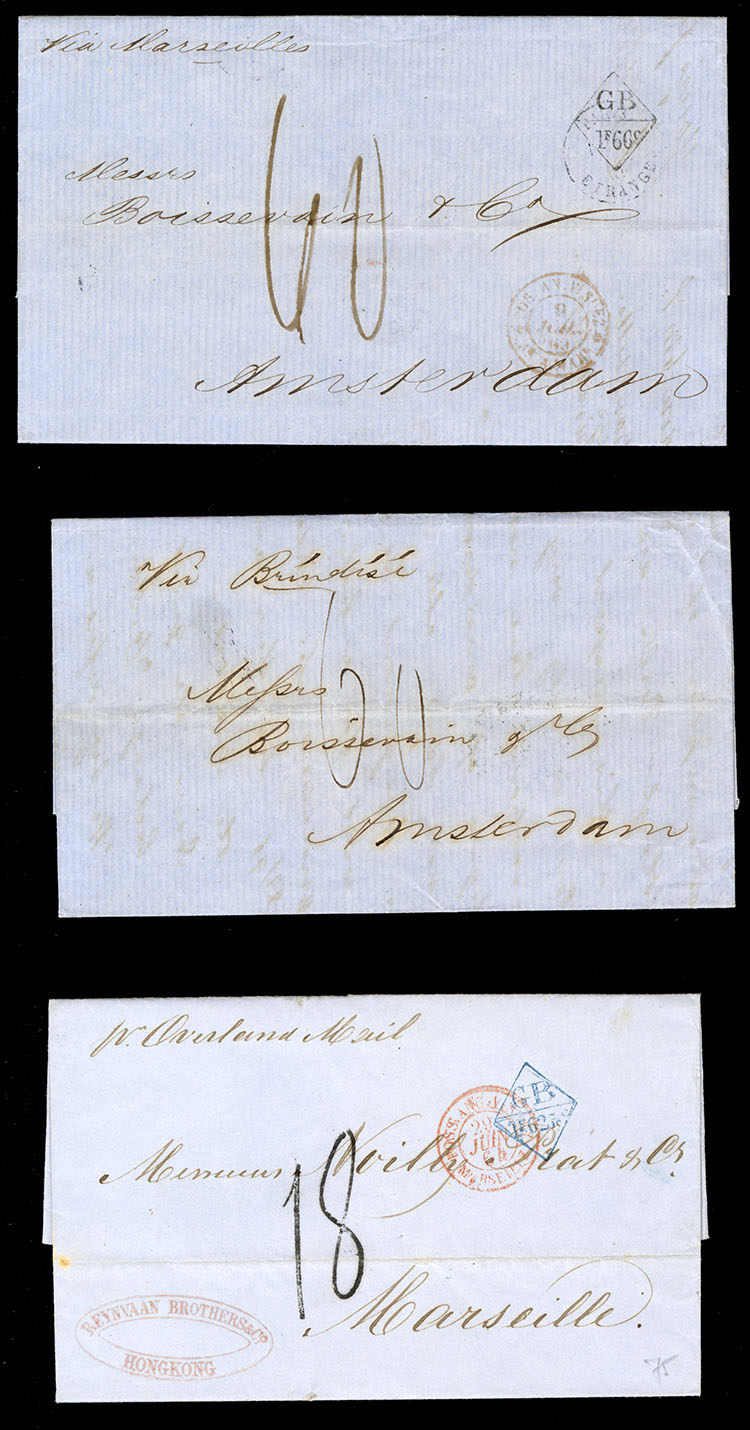 Via Marseilles
GB
1F66c
ETRANGE
Messrs
Boissevain & Co
60
9
Amsterdam
Via Brindisi
Messrs
Boissevain & Co
Amsterdam
pr Overland Mail
GB
1F62
29
JUIN
64
MARSEILLE
Messieurs Noilly Prat & Co
18
Marseille.
REYNVAAN BROTHERS & Co
HONGKONG
75